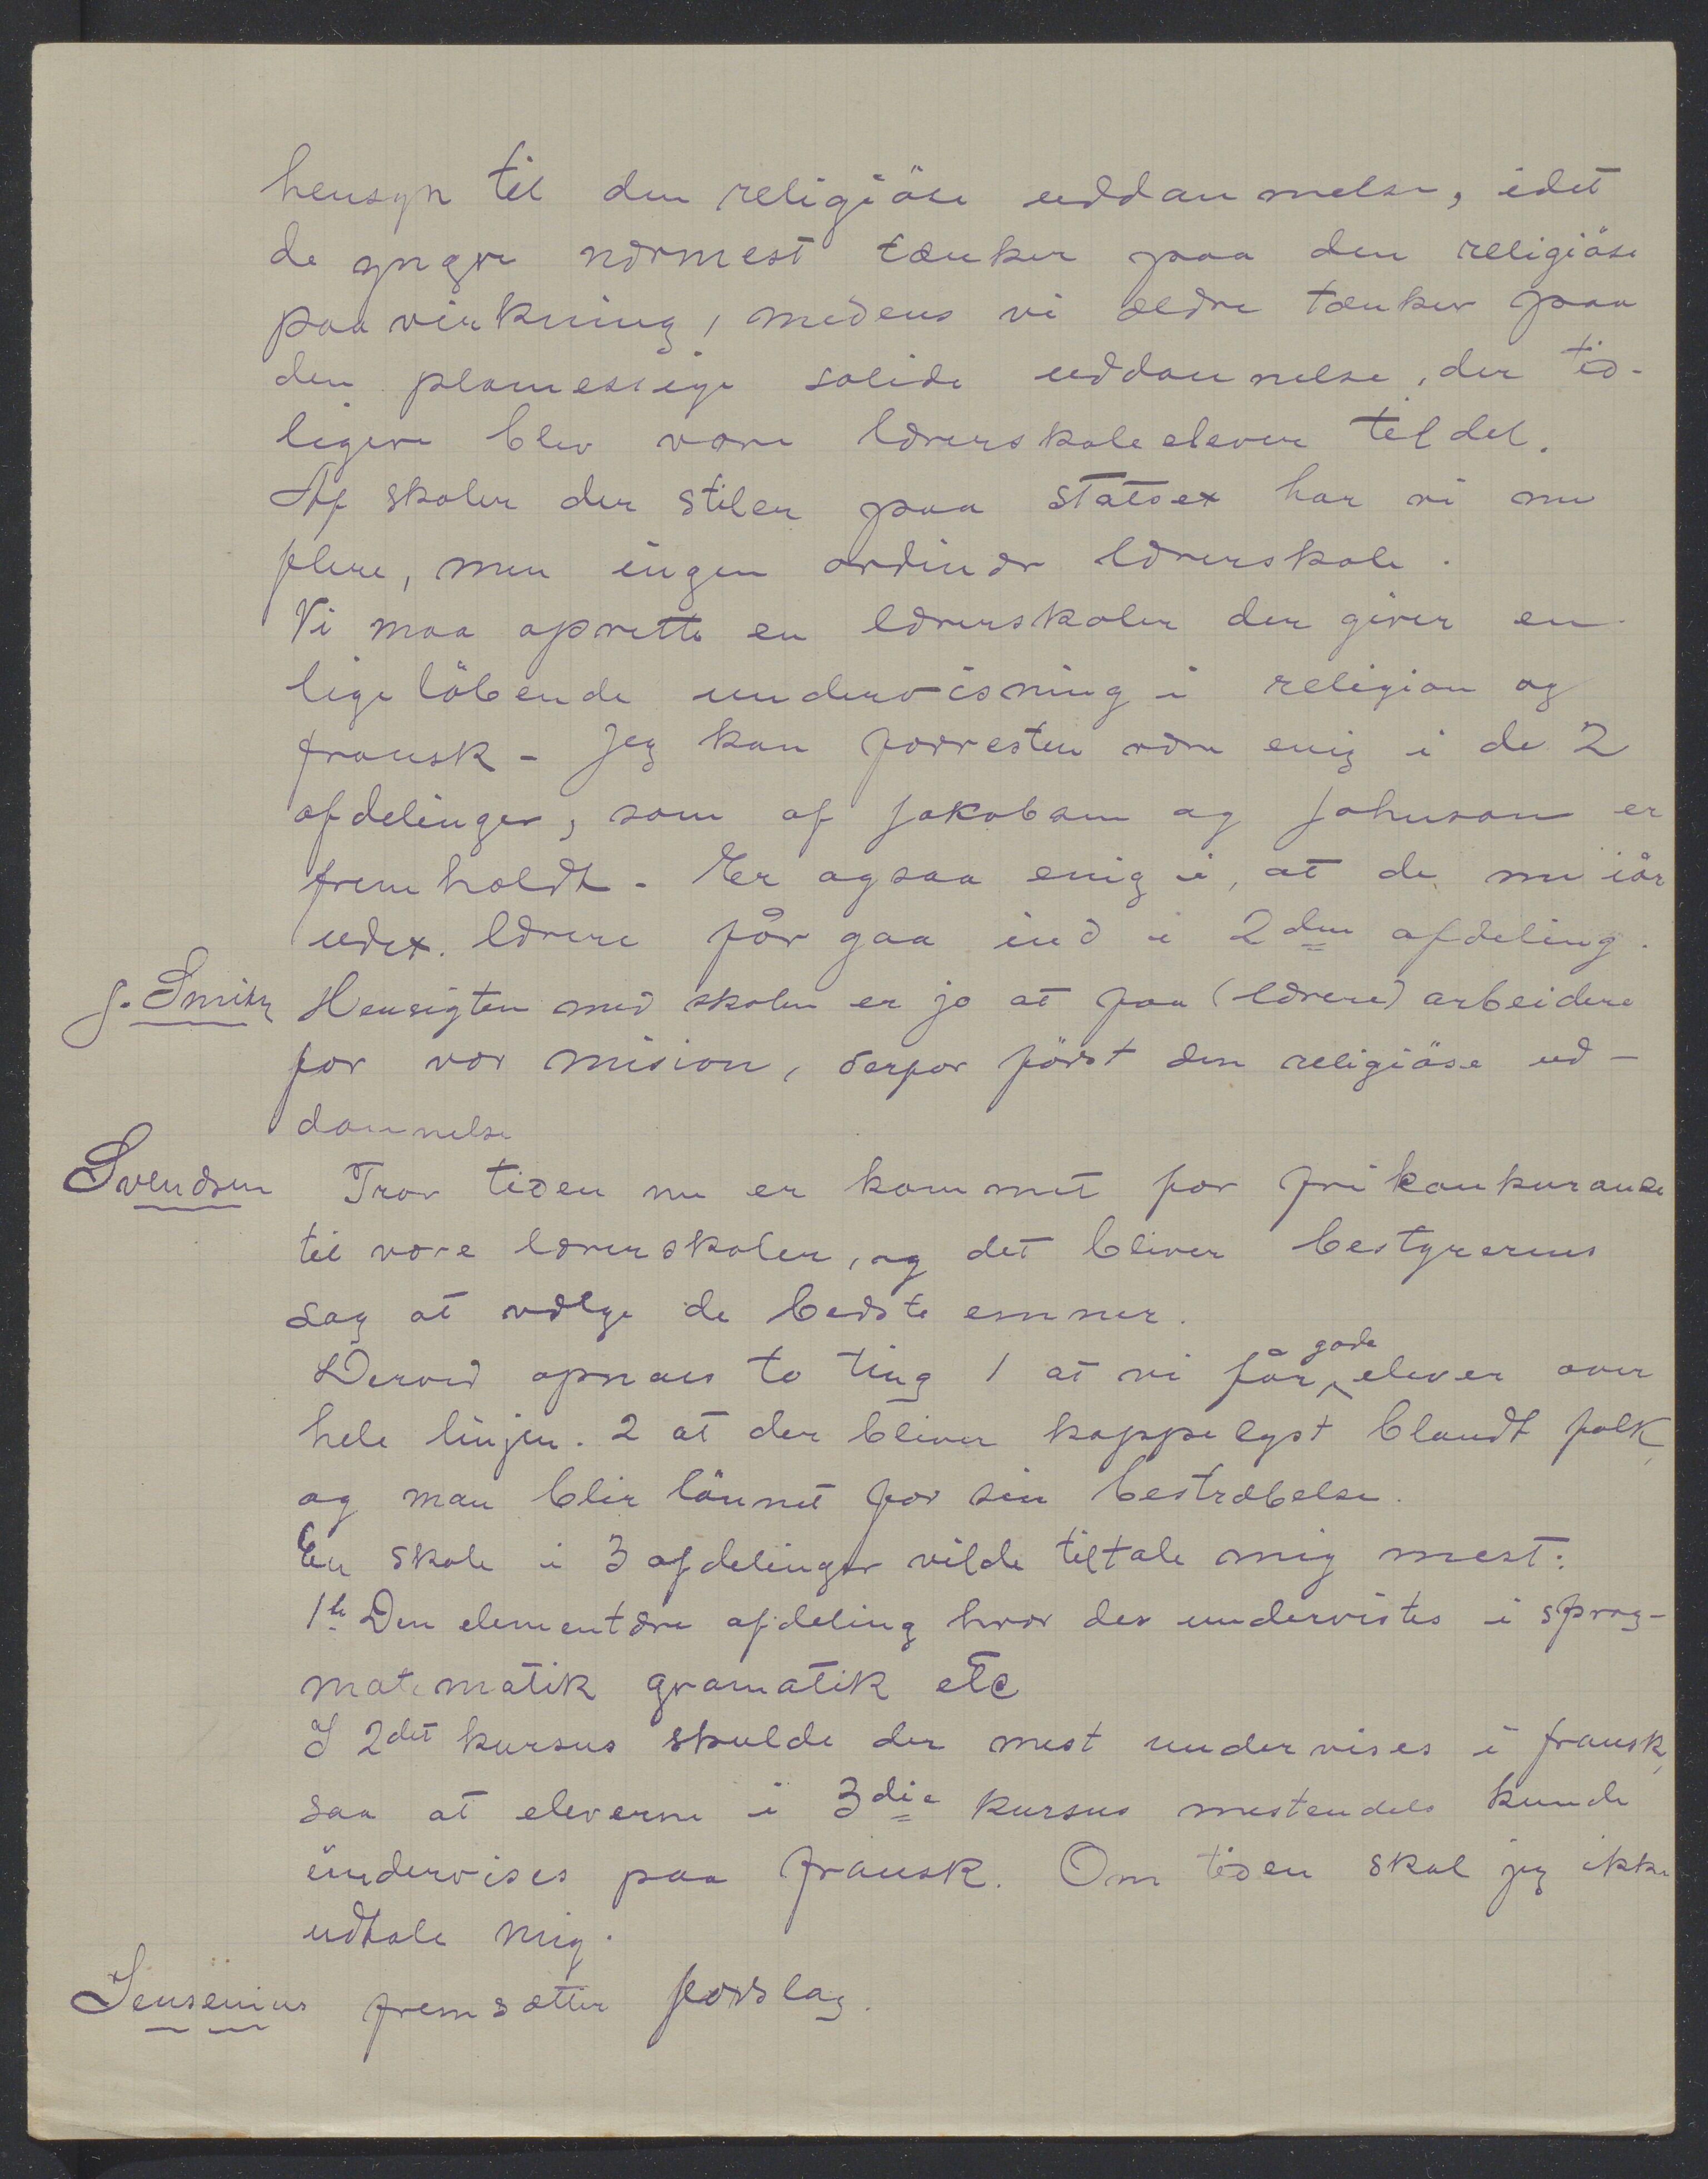 hensyn til den religiöse uddannelse, idet
de yngre nærmest tænker paa den religiöse
paavirkning, medens vi ældre tænker paa
den planmessige solide uddannelse, der tid-
ligere blev vore lærerskoleelever tildel.
Af skoler der stiler paa statsex har vi nu
flere, men ingen ordinær lærerskole.
Vi maa oprette en lærerskoler der giver en
ligelöbende undervisning i religion og
fransk - Jeg kan forresten være enig i de 2
afdelinger, som af Jakobsen og Johnson er
fremholdt - Er ogsaa enig i, at de nu iår
udex. lærere får gaa ind i 2den afdeling.
J. Smith Hensigten med skolen er jo at faa (lærere) arbeidere
for vor mision, derfor först den religiöse ud-
dannelse
Svendsen Tror tiden nu er kommet for fri konkuranse
til vore lærerskoler, og det bliver bestyrerens
sag at vælge de bedste emner.
Derved opnaes to ting 1 at vi får gode elever over
hele linjen. 2 at der bliver kappelyst blandt folk,
og man blir lönnet for sin bestræbelse.
En skole i 3 afdelinger vilde tiltale mig mest:
1ste Den elementære afdeling hvor der undervistes i sprog-
matematik gramatik etc
I 2det kursus skulde der mest undervises i fransk,
saa at eleverne i 3die kursus mestendels kunde
undervises paa fransk. Om tiden skal jeg ikke
udtale mig.
Jensenius fremsætter forslag.